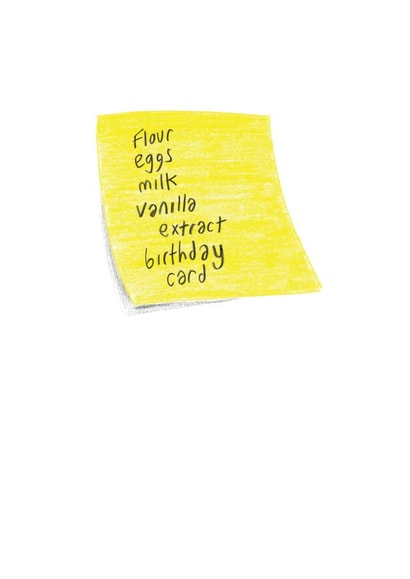 Flour
eggs
milk
vanilla
extract
birthday
card